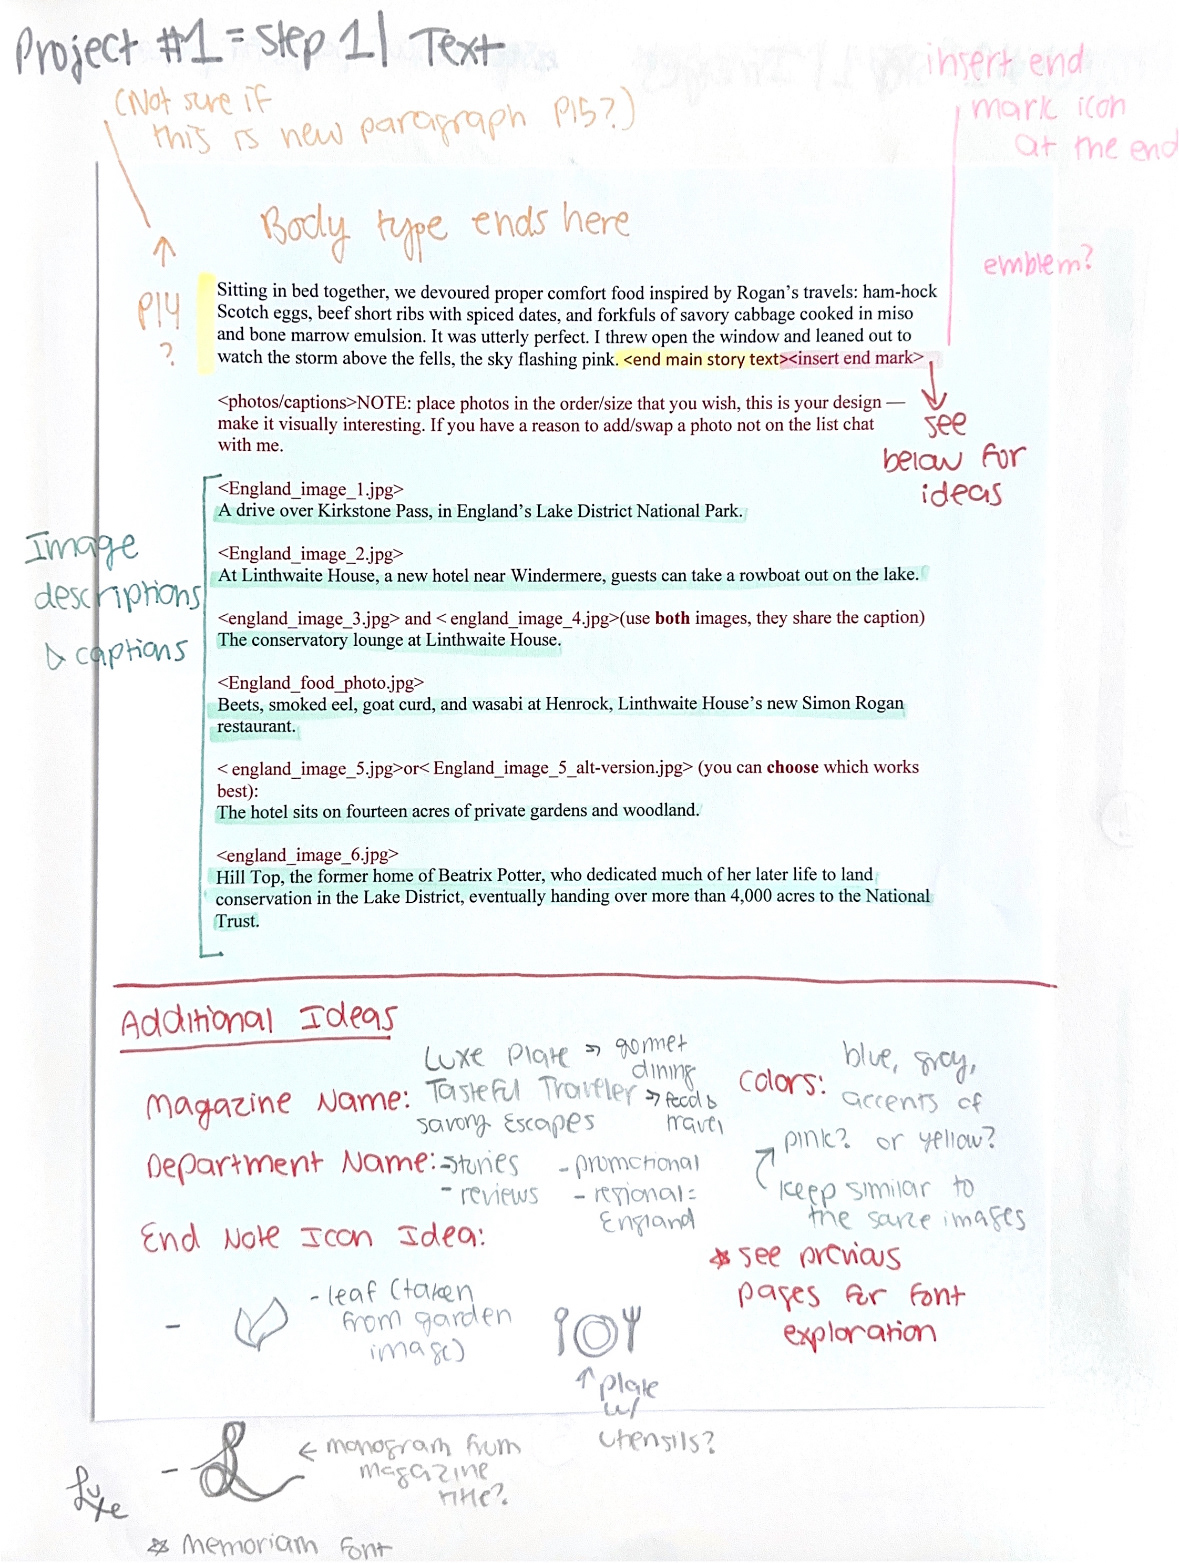 Project #1 = Step 1 | Text
(Not sure if
this is new paragraph P15?)
insert end
mark icon
at the end
Body type ends here
emblem?
P14
?
Sitting in bed together, we devoured proper comfort food inspired by Rogan's travels: ham-hock
Scotch eggs, beef short ribs with spiced dates, and forkfuls of savory cabbage cooked in miso
and bone marrow emulsion. It was utterly perfect. I threw open the window and leaned out to
watch the storm above the fells, the sky flashing pink. <end main story text><insert end mark>
<photos/captions>NOTE: place photos in the order/size that you wish, this is your design —
make it visually interesting. If you have a reason to add/swap a photo not on the list chat
with me.
see
below for
ideas
Image
descriptions
& captions
<England_image_1.jpg>
A drive over Kirkstone Pass, in England's Lake District National Park.
<England_image_2.jpg>
At Linthwaite House, a new hotel near Windermere, guests can take a rowboat out on the lake.
<england_image_3.jpg> and < england_image_4.jpg>(use both images, they share the caption)
The conservatory lounge at Linthwaite House.
<England_food_photo.jpg>
Beets, smoked eel, goat curd, and wasabi at Henrock, Linthwaite House's new Simon Rogan
restaurant.
< england_image_5.jpg>or< England_image_5_alt-version.jpg> (you can choose which works
best):
The hotel sits on fourteen acres of private gardens and woodland.
<england_image_6.jpg>
Hill Top, the former home of Beatrix Potter, who dedicated much of her later life to land
conservation in the Lake District, eventually handing over more than 4,000 acres to the National
Trust.
Additional Ideas
Magazine Name:
Luxe Plate → gormet
dining
Tasteful Traveler → food &
travel
Savory Escapes
Colors:
blue, gray,
accents of
pink? or yellow?
keep similar to
the same images
Department Name:
- stories
- reviews
- promotional
- regional =
England
End Note Icon Idea:
- leaf (taken
from garden
image)
↑ plate
w/
utensils?
* see previous
pages for font
exploration
- L
← monogram from
magazine
title?
Luxe
* Memoriam font